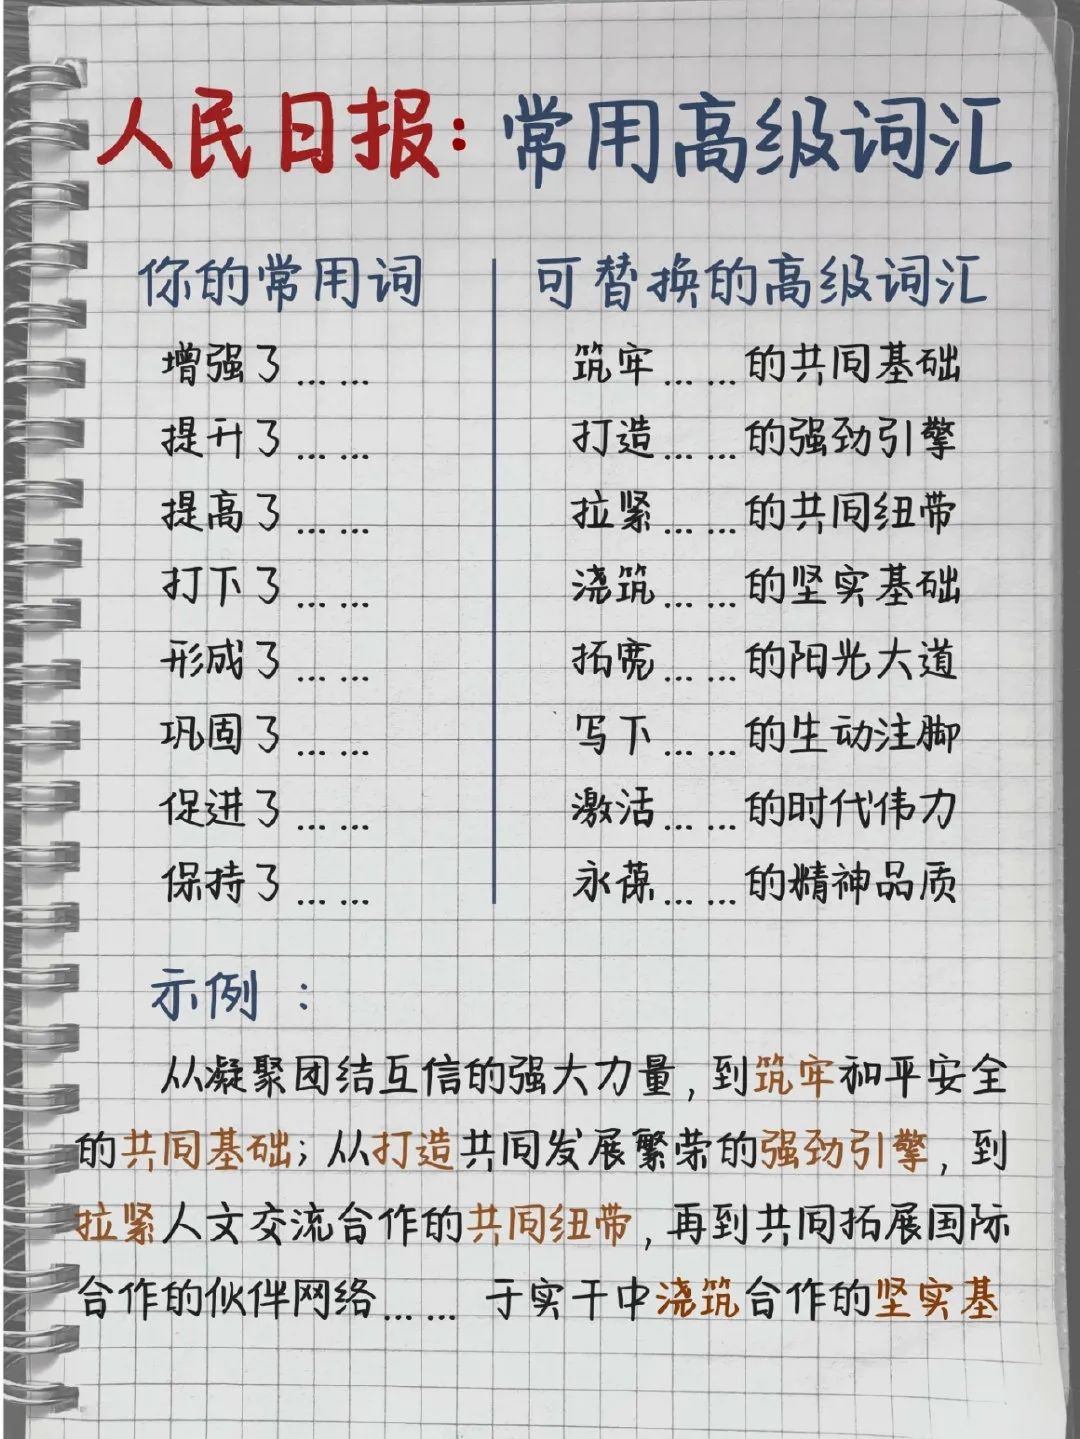 人民日报：常用高级词汇
你的常用词 可替换的高级词汇
增强了…… 筑牢……的共同基础
提升了…… 打造……的强劲引擎
提高了…… 拉紧……的共同纽带
打下了…… 浇筑……的坚实基础
形成了…… 拓宽……的阳光大道
巩固了…… 写下……的生动注脚
促进了…… 激活……的时代伟力
保持了…… 永葆……的精神品质
示例：
从凝聚团结互信的强大力量，到筑牢和平安全
的共同基础；从打造共同发展繁荣的强劲引擎，到
拉紧人文交流合作的共同纽带，再到共同拓展国际
合作的伙伴网络…… 于实干中浇筑合作的坚实基